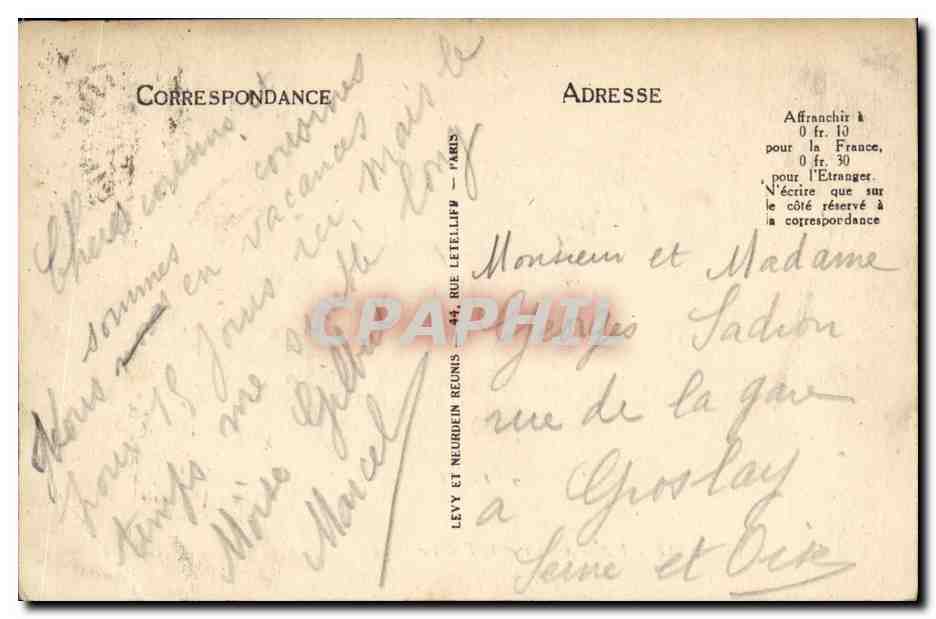 CORRESPONDANCE
Chers cousins et cousines
Nous sommes en vacances
pour 15 jours ici mais le
temps me semble long
Gilbert
Marcel
LEVY ET NEURDEIN REUNIS — 44, RUE LETELLIER — PARIS
ADRESSE
Affranchir à
0 fr. 10
pour la France,
0 fr. 30
pour l'Etranger.
N'écrire que sur
le côté réservé à
la correspondance
Monsieur et Madame
Georges Sadron
rue de la gare
à Groslay
Seine et Oise
CPAPHIL